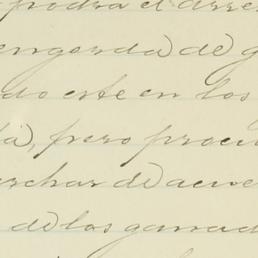 podrá el arre
engorda de g
do este en los
da, pero procu
rchar de acue
de los ganad